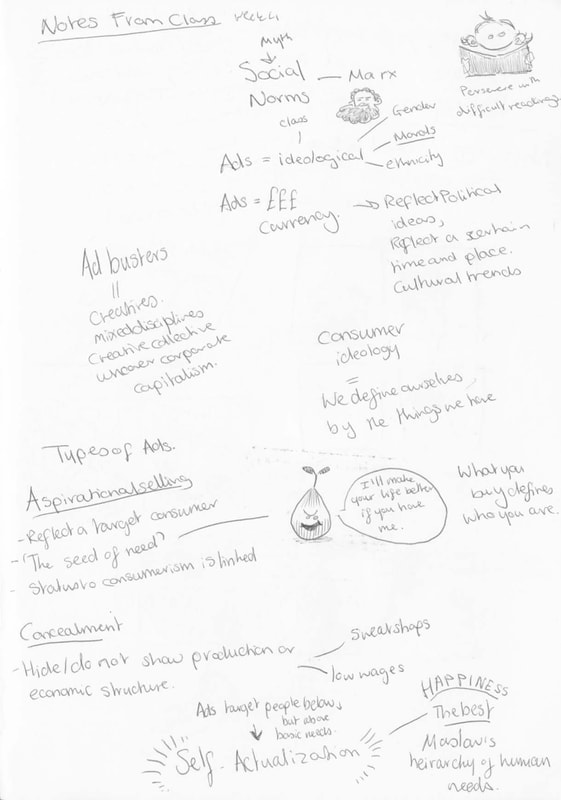 Notes From Class week 4
Myth
Social — Marx
Norms
Persevere with
difficult readings
class
Gender
Morals
ethnicity
Ads = ideological
Ads = £££
Currency.
Reflect Political
ideas,
Reflect a certain
time and place.
Cultural trends
Ad busters
=
Creatives.
mixed disciplines
Creative collective
corporate
capitalism.
Consumer
ideology
=
We define ourselves
by the things we have
Types of Ads.
Aspirational selling
- Reflect a target consumer
- 'The seed of need'
- Status to consumerism is linked
I'll make
your life better
if you have
me.
What you
buy defines
who you are.
Concealment
- Hide/do not show production or
economic structure.
sweatshops
low wages
Ads target people below,
but above
basic needs.
Self-Actualization
HAPPINESS
The best
Maslow's
heirarchy of human
needs.